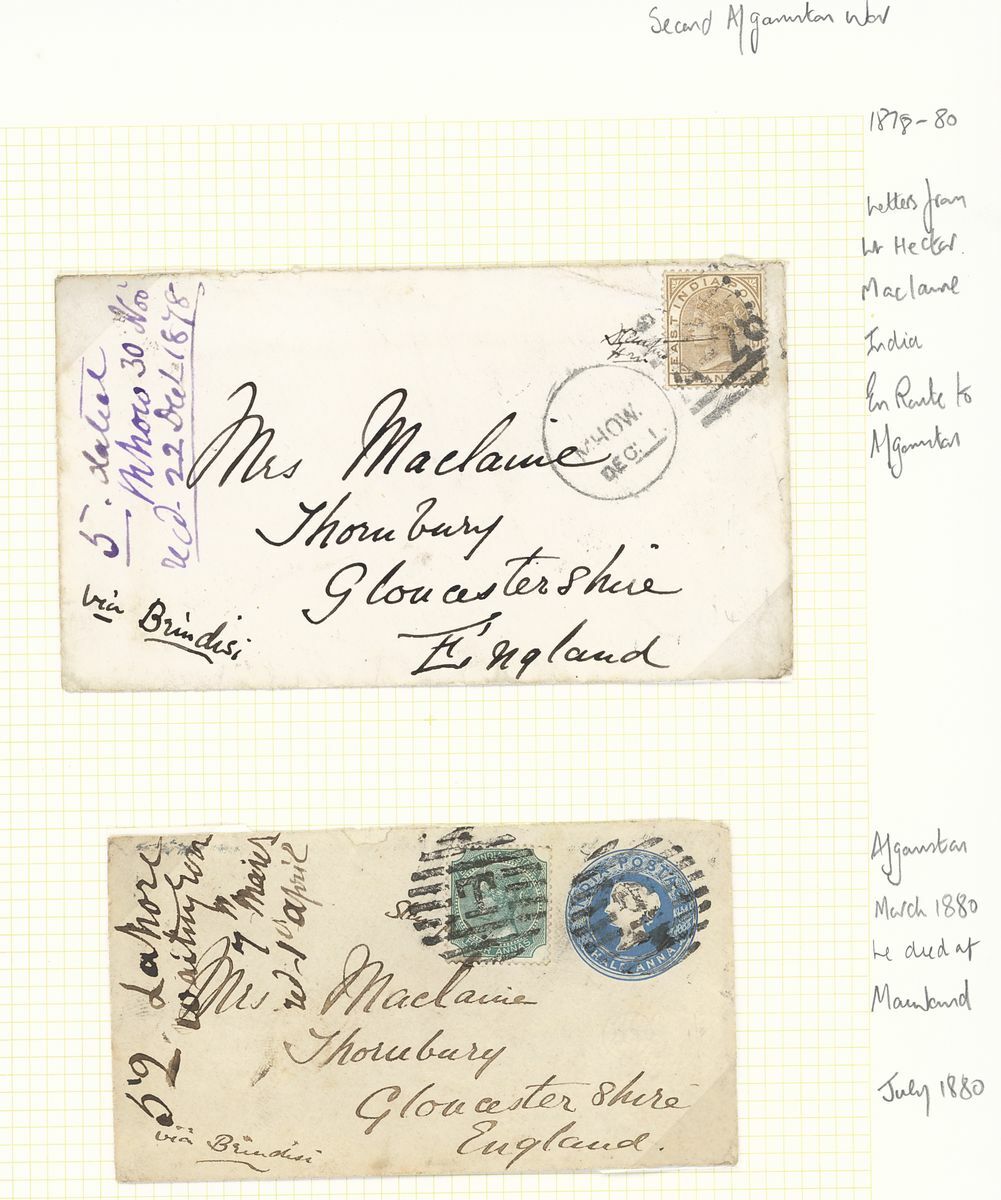 Second Afganistan War
1878-80
Letters from
Lt Hector
Maclaine
India
En Route to
Afganistan
5. dated
Mhow 30 Nov
recd. 22 Decr 1878
EAST INDIA POSTAGE
ANNAS
MHOW.
DEC. 1.
Mrs Maclaine
Thornbury
Gloucestershire
England
via Brindisi
52 Lahore
Waiting Room
7th March
rd 1st April
INDIA POSTAGE
HALF ANNA
Mrs Maclaine
Thornbury
Gloucestershire
England.
via Brindisi
Afganistan
March 1880
he died at
Maiwand
July 1880